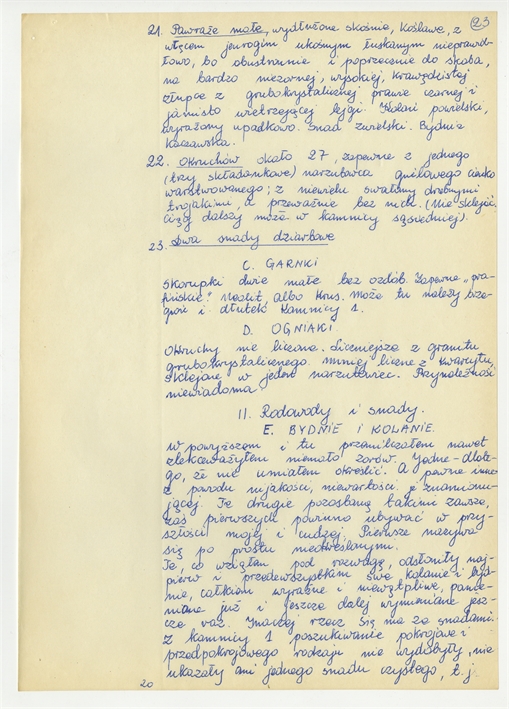 23
21. Pawraże małe, wydłużone skośnie, koślawe, z
włącem jednogim ukośnym łuskanym nieprawid-
łowo, bo obustronnie i poprzecznie do skosa,
na bardzo niezornej, wysokiej, krawędzistej
złupce z grubokrystalicznej prawie czarnej i
jasnisto wietrzejącej lygi. Kolani powielski,
wyrażony upadkowo. Snad żurelski. Bydnia
Kaczawska.
22. Okruchów około 27, zapewne z jednego
(trzy składankowe) narzutowca gnilowego cienko
warstwowanego; z niewielu swałymi drobnymi
trojakimi, a przeważnie bez nich. (Nie sklejać.
Ciąg dalszy może w kamnicy sąsiedniej).
23. Dwa snady dziarbowe
C. GARNKI
Skorupki dwie małe bez ozdób. Zapewne „gra-
fińskie". Neolit albo Krus. Może tu należy brze-
gowe i dłutek Kamnicy 1.
D. OGNIAKI
Okruchy nie liczone. Liczniejsze z granitu
grubokrystalicznego. mniej liczne z kwarcytu,
sklejane w jeden narzutowiec. Przynależność
niewiadoma
II. Rodowody i snady.
E. BYDNIE I KOLANIE
W powyższem i tu przemilczałem nawet
zlekceważyłem niemało zorów. Jedne-dlate-
go, że nie umiałem określić. A pewne inne
z powodu nijakości, niewartości nieznamionu-
jącej. Te drugie pozostaną takimi zawsze,
zaś pierwszych powinno ubywać w przy-
szłości mojej i cudzej. Pierwsze nazywa
się po prostu nieokreślonymi.
Te, co wziąłem pod rozwagę, odsłoniły naj-
pierw i przedewszystkim swe kolanie i byd-
nie, całkiem wyraźne i niewątpliwe, poda-
wane już i jeszcze dalej wymieniane jesz-
cze raz. Inaczej rzecz się ma ze snadami.
Z kamnicy 1 poszukiwanie pokrojowe i
przedpokrojowego rodzaju nie wydobyły, nie
ukazały ani jednego snadu czystego, t.j.
20